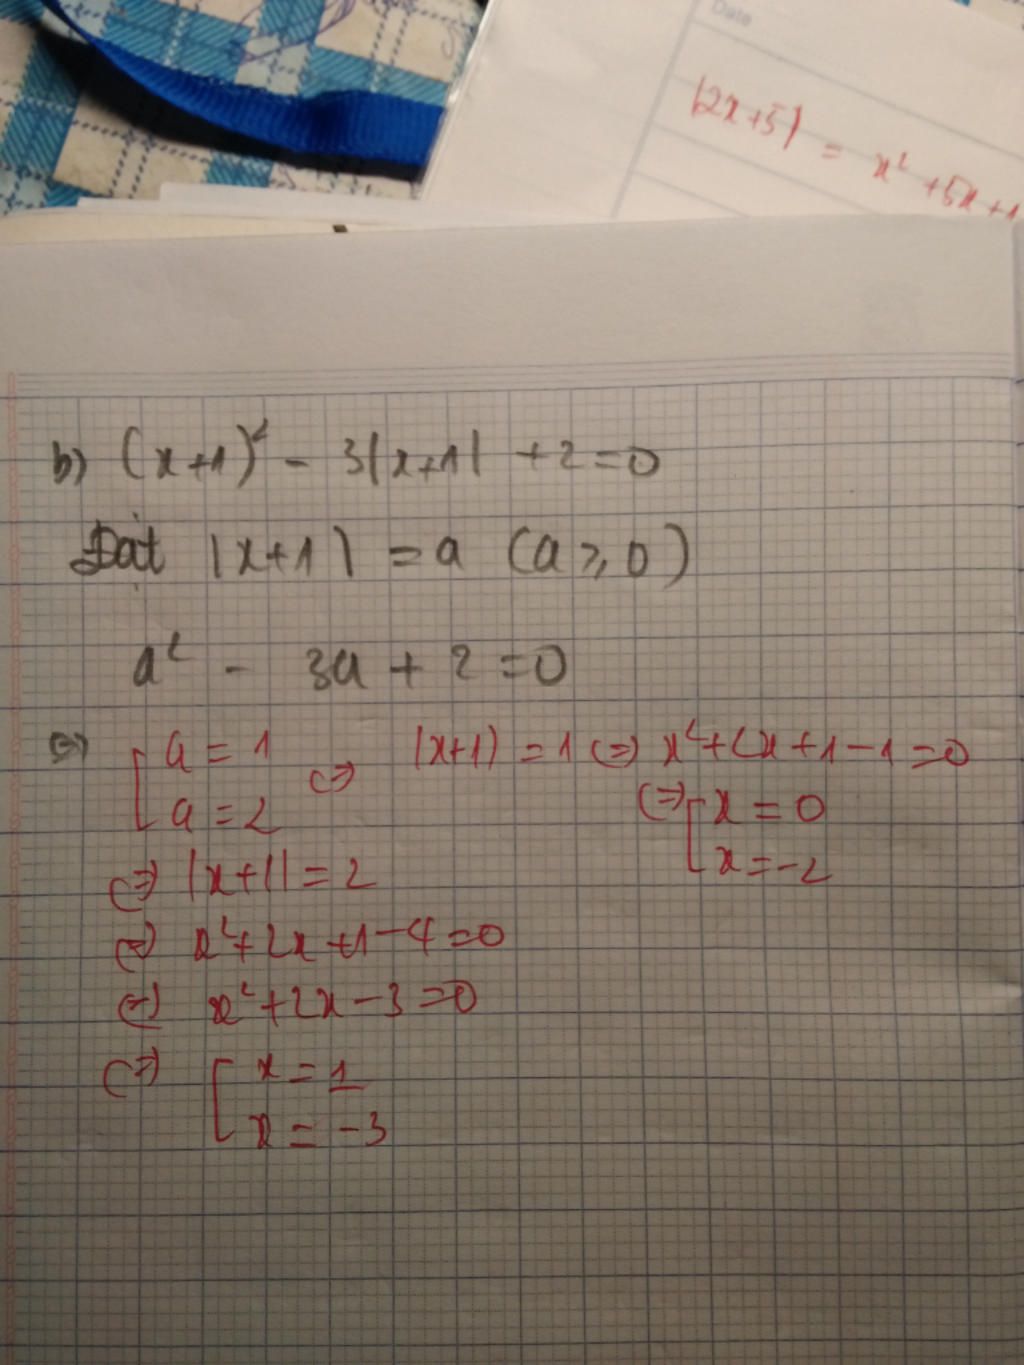 Date
|2x+5| = x² +5x+1
b) (x+1)² - 3|x+1| +2=0
Đặt |x+1| = a (a ≥ 0)
a² - 3a + 2 = 0
(=) [ a = 1 (=) |x+1| = 1 (=) x²+2x+1-1=0
a = 2 (=) [ x = 0
(=) |x+1| = 2 x = -2
(=) x²+2x+1-4=0
(=) x²+2x-3=0
(=) [ x = 1
x = -3